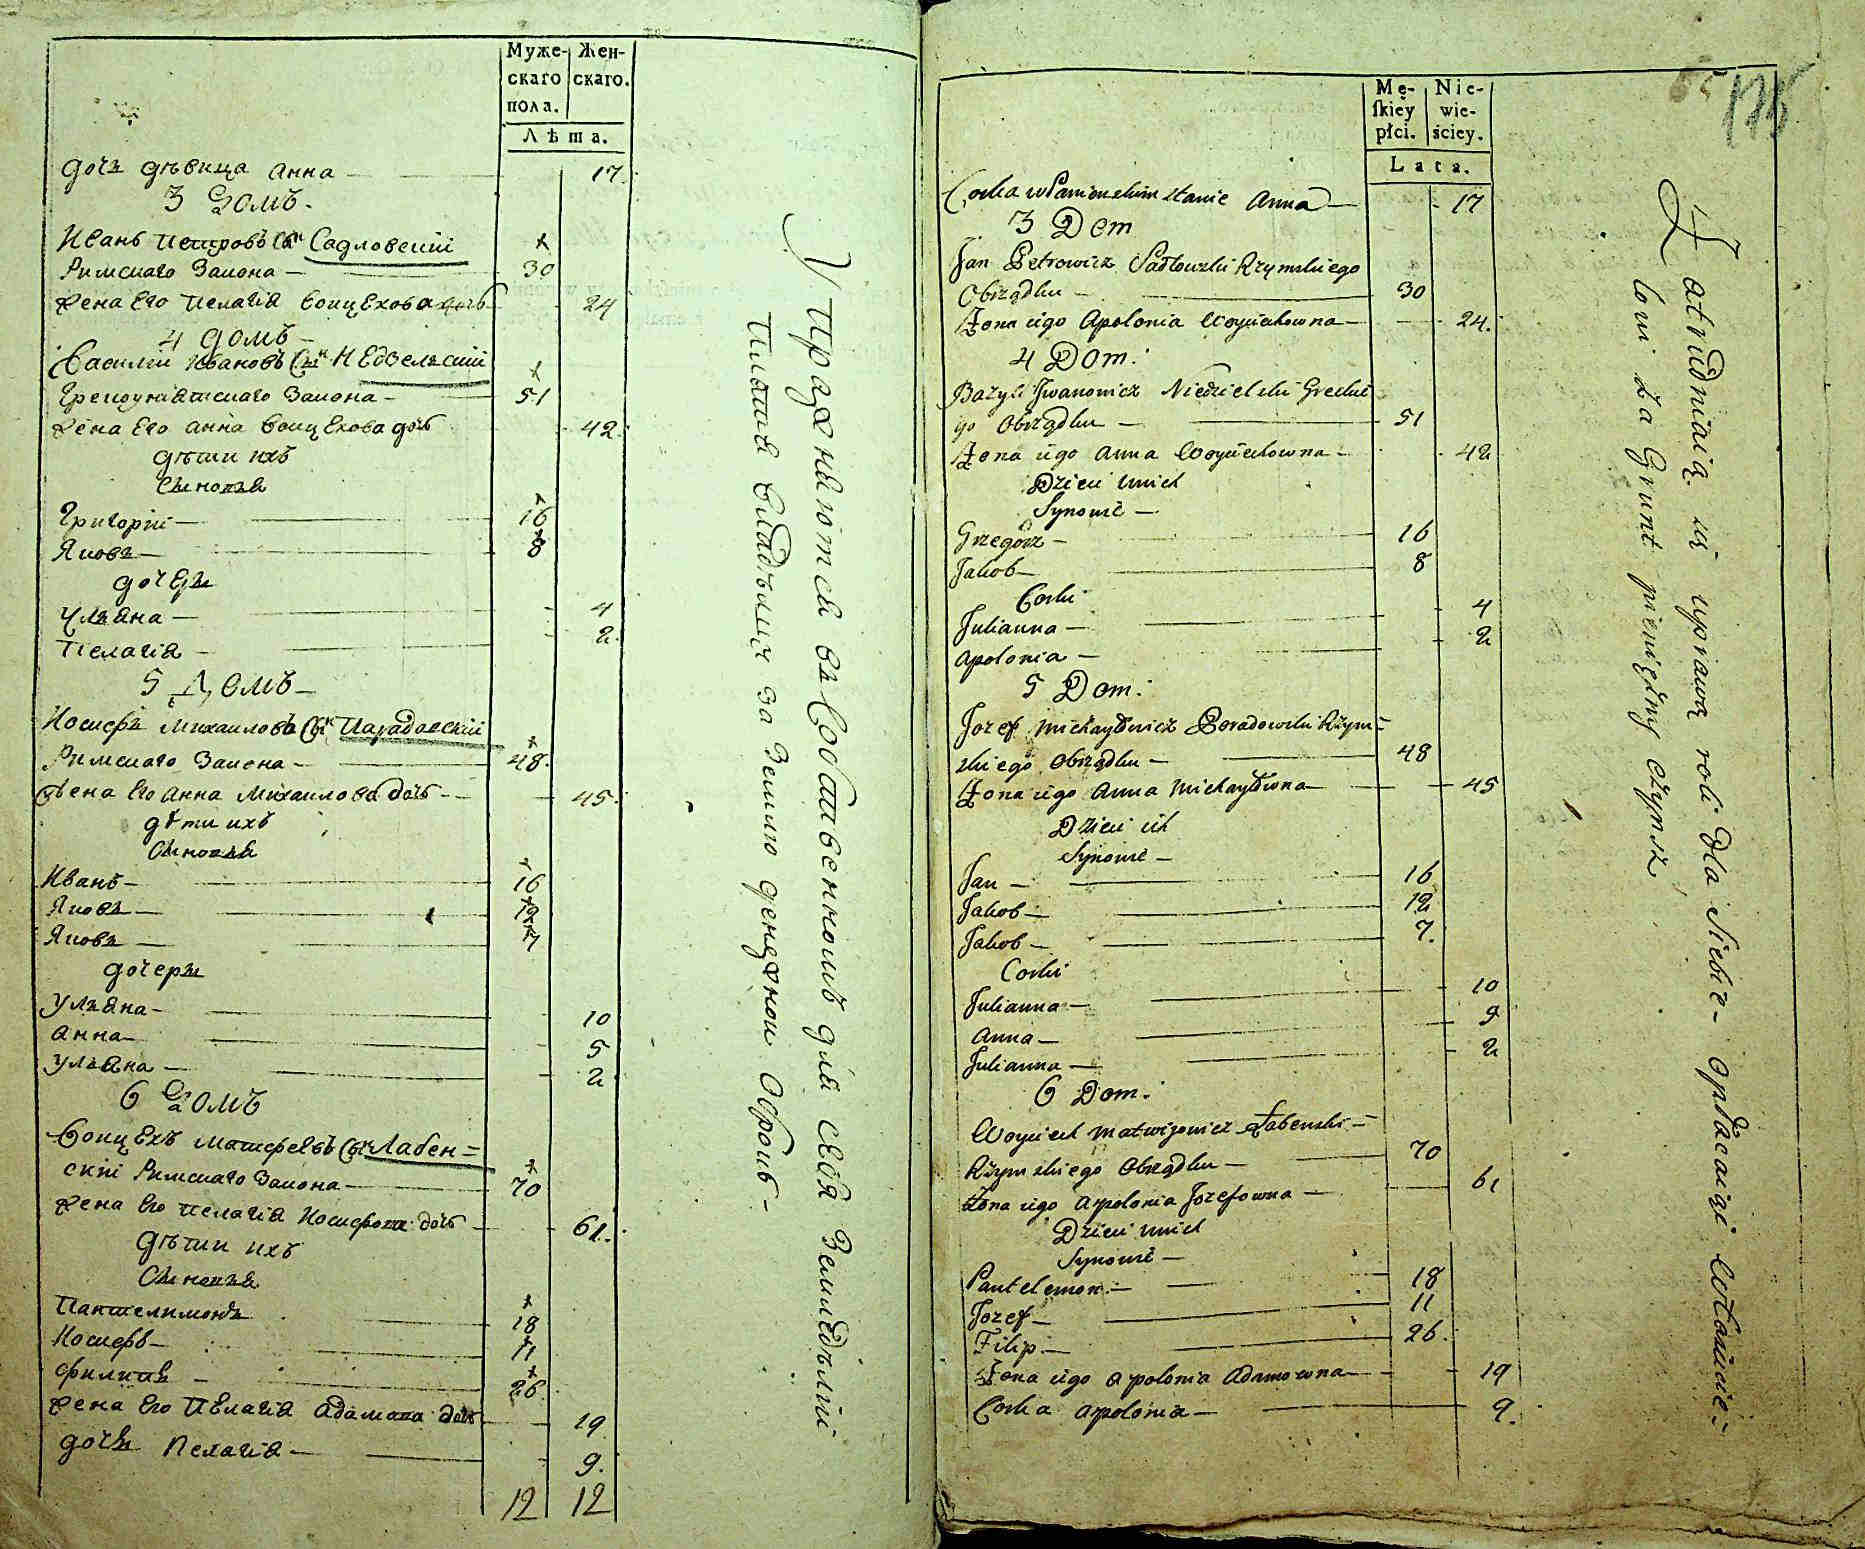 Муже-
скаго
пола.
Жен-
скаго.
Лѣта.
дочь дѣвица Анна — 17.
3 Домъ.
Иванъ Петровъ Сн Садловский
Римскаго Закона — 30
Жена Его Пелагія Воицехова дочь 24
4 домъ —
Василий Ивановъ Сн Недзельский
Грекоуніатскаго Закона — 51
Жена Его Анна Воицехова дочь 42.
дѣти ихъ
Сыновья
Григорій — 16
Яковъ — 8
дочери
Ульяна — 4
Пелагія — 2.
5 Домъ —
Иосифъ Михаиловъ Сн Парадовский
Римскаго Закона — 48.
Жена Его Анна Михаилова дочь — 45.
дѣти ихъ
Сыновья
Иванъ — 16
Яковъ — 12
Яковъ — 7
дочери
Ульяна — 10
Анна — 5
Ульяна — 2
6 Домъ
Воицехъ Матфеевъ Сн Лабен=
ский Римскаго Закона — 70
Жена Его Пелагія Иосифова дочь — 61.
дѣти ихъ
Сыновья
Пантелимонъ — 18
Иосифъ — 11
Филипъ — 26
Жена Его Пелагія Адамова дочь 19
дочь Пелагія — 9.
12 12
Упражняются въ Собственномъ для себя Земледѣліи
Платя Владѣльцу за Землю денежной Оброкъ —
175
Mę-
skiey
płci.
Nie-
wie-
ściey.
Lata.
Corka w Panienskim stanie Anna — 17
3 Dom
Jan Petrowicz Sadłowski Rzymskiego
Obrządku — 30
Żona iego Apolonia Woyciechowna — 24.
4 Dom.
Bazyli Iwanowicz Niedzielski Greckie
go Obrządku — 51
Żona iego Anna Woyciechowna — 42
Dzieci u nich
Synowie —
Grzegorz — 16
Jakob — 8
Corki
Julianna — 4
Apolonia — 2
5 Dom.
Jozef Michayłowicz Poradowski Rzym=
skiego Obrządku — 48
Żona iego Anna Michayłowna — 45
Dzieci ich
Synowie —
Jan — 16
Jakob — 12
Jakob — 7.
Corki
Julianna — 10
Anna — 5
Julianna — 2
6 Dom.
Woyciech Matwijowicz Łabenski =
Rzymskiego Obrządku — 70
Żona iego Apolonia Jozefowna — 61
Dzieci u nich
Synowie —
Pantelemon — 18
Jozef — 11
Filip — 26.
Żona iego Apolonia Adamowna — 19
Corka Apolonia — 9.
Zatrudniaią się uprawą roli dla Siebie — opłacaiąc Właścicie=
lowi za Grunt pieniężny czynsz